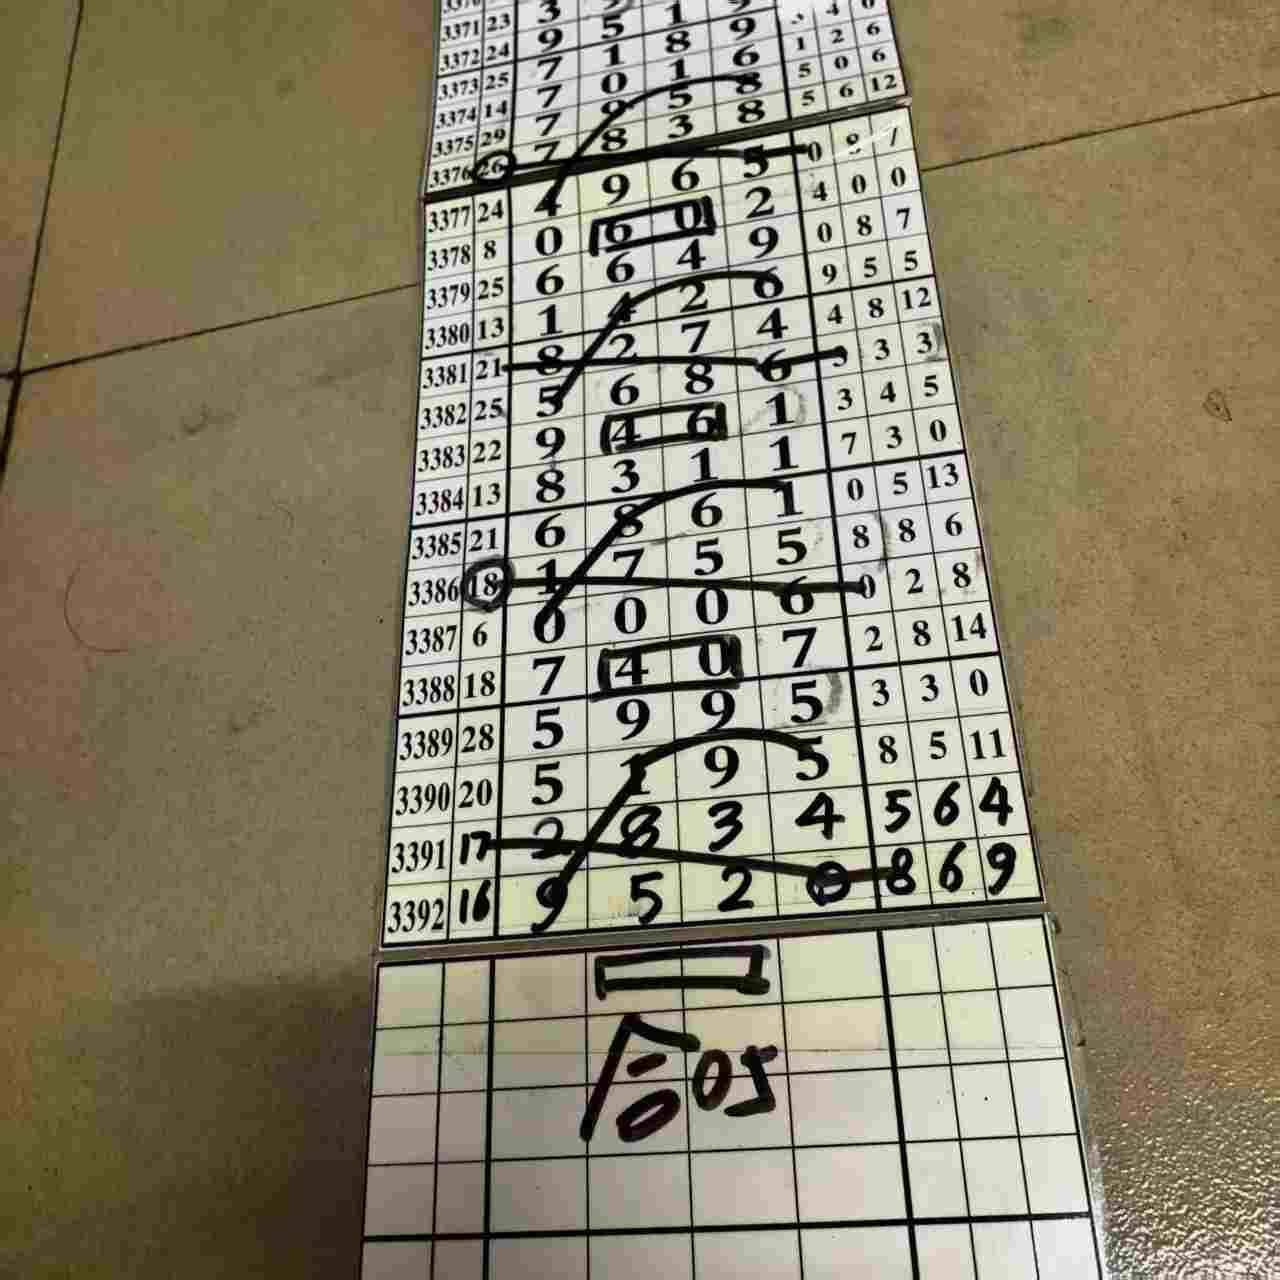 3371 23 3
3372 24 9 5 1 9
3373 25 7 1 8 9 4
3374 14 7 0 1 6 1 2 6
3375 29 7 9 5 8 5 0 6
3376 26 7 8 3 8 5 6 12
3377 24 4 9 6 5 0 8 7
3378 8 0 6 0 2 4 0 0
3379 25 6 6 4 9 0 8 7
3380 13 1 4 2 6 9 5 5
3381 21 8 2 7 4 4 8 12
3382 25 5 6 8 6 3 3
3383 22 9 4 6 1 3 4 5
3384 13 8 3 1 1 7 3 0
3385 21 6 8 6 1 0 5 13
3386 18 1 7 5 5 8 8 6
3387 6 0 0 0 6 0 2 8
3388 18 7 4 0 7 2 8 14
3389 28 5 9 9 5 3 3 0
3390 20 5 1 9 5 8 5 11
3391 17 2 8 3 4 5 6 4
3392 16 9 5 2 0 8 6 9
合05